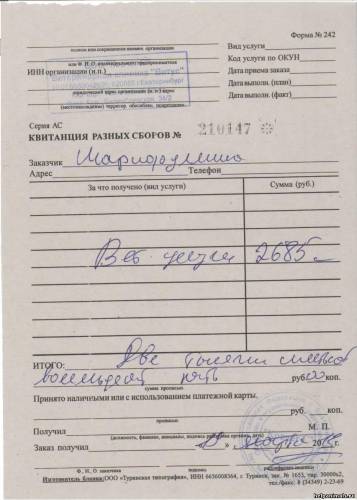 Форма № 242
полное или сокращенное наименов. организации
Вид услуги
или Ф. И. О. индивидуального предпринимателя
Код услуги по ОКУН
ИНН организации (и.п.)
Дата приема заказа
Дата выполн. (план)
юридический адрес организации (и.п.) адрес
Дата выполн. (факт)
(местонахождение) территор. обособлен. подразделен.
Серия АС
КВИТАНЦИЯ РАЗНЫХ СБОРОВ № 210147
Заказчик
Адрес Телефон
За что получено (вид услуги) Сумма (руб.)
Вет услуги 2685
ИТОГО: Две тысячи шестьсот
восемьдесят пять руб. 00 коп.
сумма прописью
Принято наличными или с использованием платежной карты.
руб. коп.
прописью
Получил М. П.
(должность, фамилия, инициалы, подпись работника организ., дата)
Заказ получил марта
Ф., И., О. заказчика подпись
Изготовитель бланка: ООО «Туринская типография», ИНН 6656008364, г. Туринск, зак. № 1653, тир. 30000х2,
тел./факс: 8 (34349) 2-23-69
helpanimals.ru